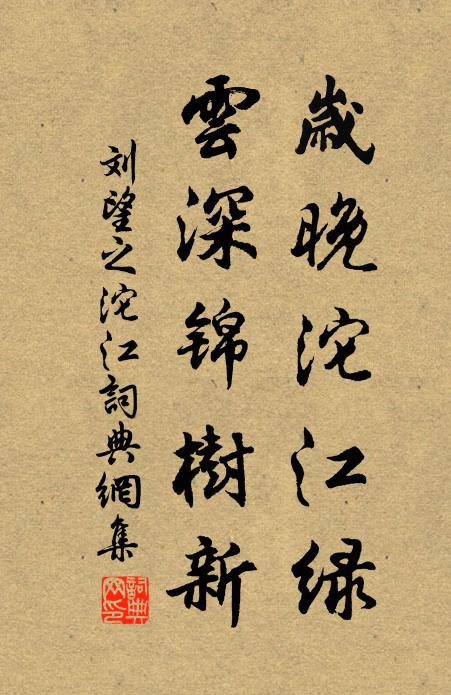 歲晚沱江绿
雲深锦樹新
刘望之沱江詞典網集
詞典网印